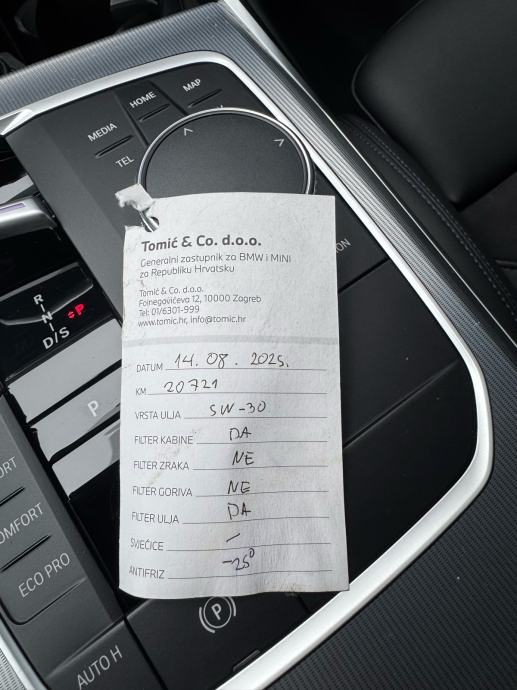 MEDIA
HOME
MAP
TEL
Tomić & Co. d.o.o.
Generalni zastupnik za BMW i MINI
za Republiku Hrvatsku
Tomić & Co. d.o.o.
Folnegovićeva 12, 10000 Zagreb
Tel: 01/6301-999
www.tomic.hr, info@tomic.hr
DATUM 14.08.2025.
KM 20721
VRSTA ULJA 5W-30
FILTER KABINE DA
FILTER ZRAKA NE
FILTER GORIVA NE
FILTER ULJA DA
SVJEĆICE –
ANTIFRIZ -25°
R
N
D/S
P
P
ECO PRO
(P)
AUTO H